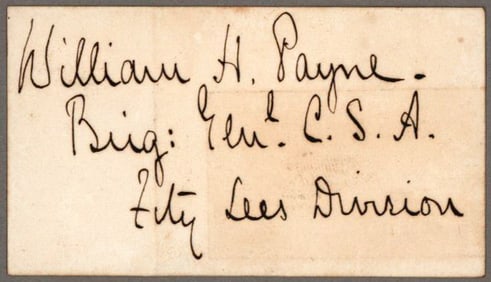 William H. Payne.
Brig: Genl. C. S. A.
Fitz Lees Division